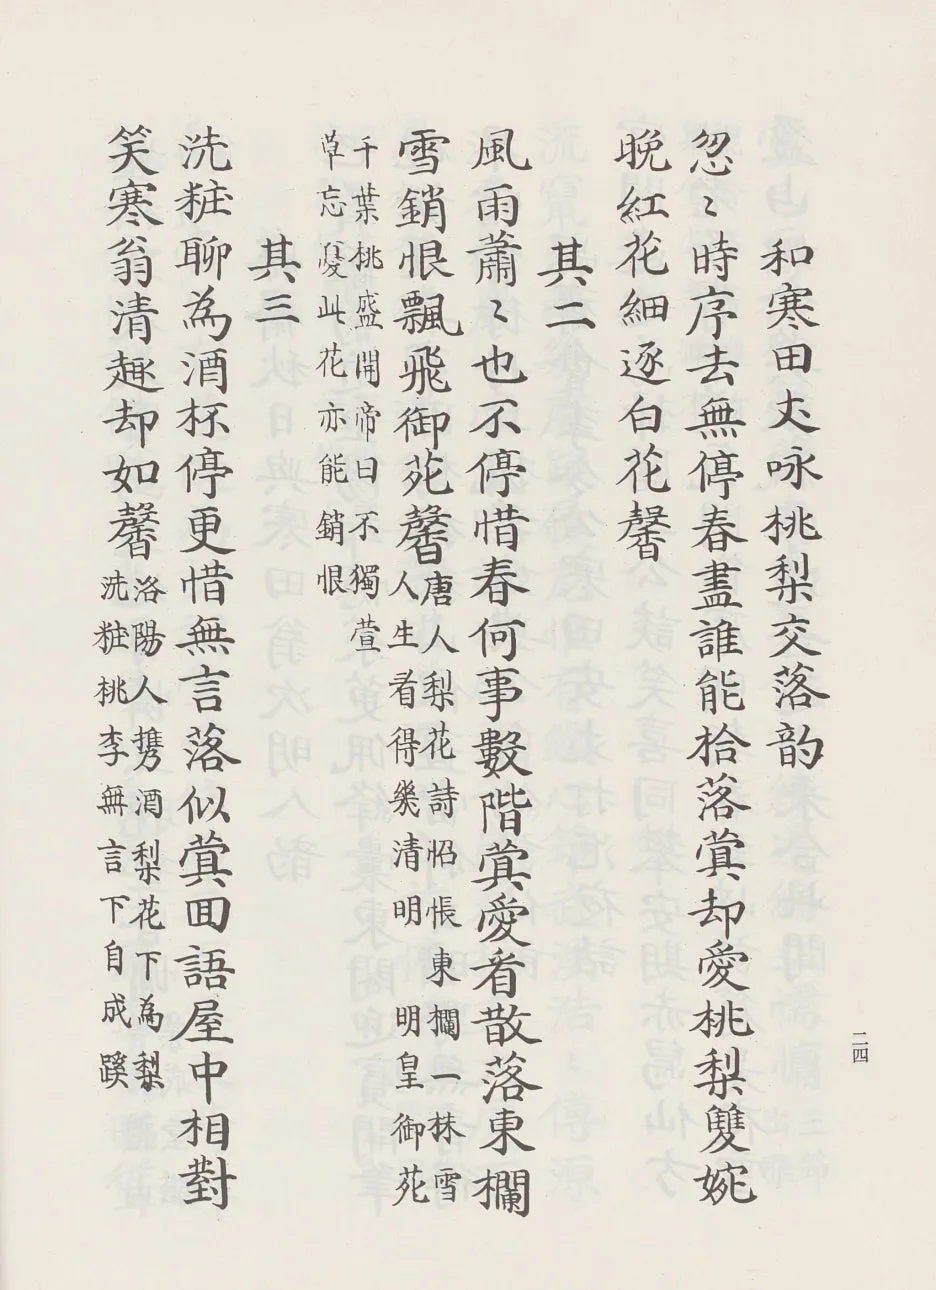 和寒田丈咏桃梨交落韵
忽〻時序去無停春盡誰能拾落蓂却愛桃梨雙婉
晚紅花細逐白花馨
其二
風雨蕭〻也不停惜春何事數階蓂愛看散落東欄
雪銷恨飄飛御苑馨
唐人梨花詩怊悵東欄一株雪
人生看得幾清明 明皇御苑
千葉桃盛開帝曰不獨萱
草忘憂此花亦能銷恨
其三
洗粧聊為酒杯停更惜無言落似蓂囬語屋中相對
笑寒翁清趣却如馨
洛陽人携酒梨花下為梨
洗粧桃李無言下自成蹊
二四